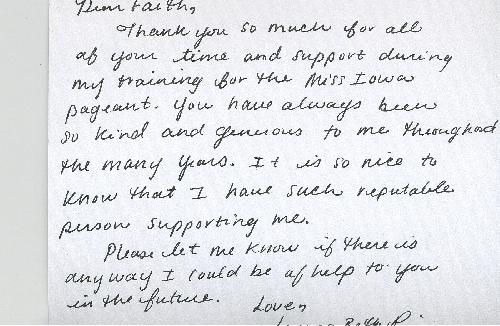 Dear Faith,
Thank you so much for all
of your time and support during
my training for the Miss Iowa
pageant. You have always been
so kind and generous to me throughout
the many years. It is so nice to
know that I have such reputable
person supporting me.
Please let me know if there is
anyway I could be of help to you
in the future.
Love,